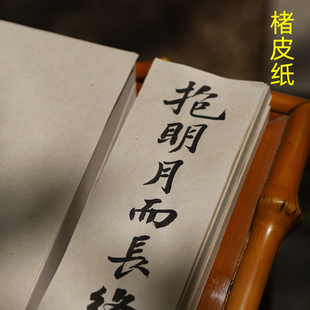 楮皮纸
抱明月而長終